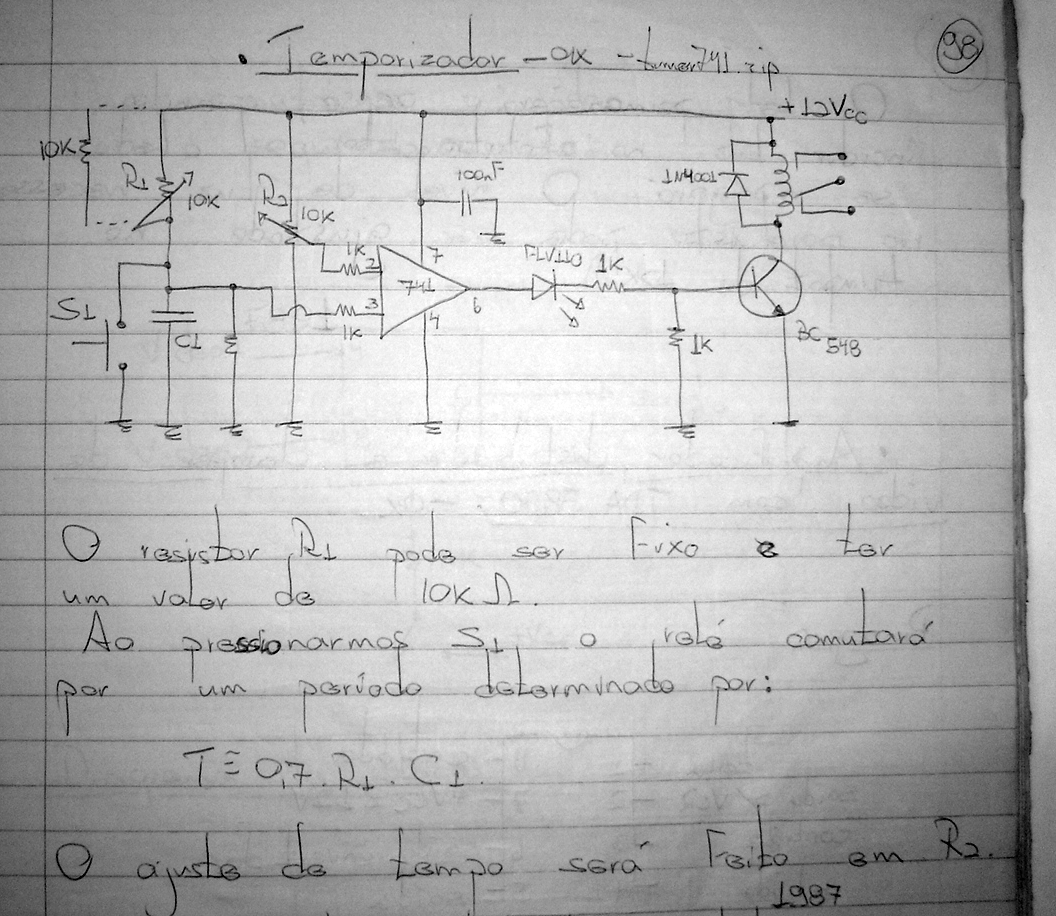 98
• Temporizador - OK - timer741.zip
+12Vcc
10K
R1
10K
R2
10K
100nF
1N4001
1K
2
7
741
3
1K
4
6
FLV110
1K
S1
C1
1K
BC 548
O resistor R1 pode ser Fixo e ter
um valor de 10K Ω.
Ao pressionarmos S1 o relé comutará
por um período determinado por:
T ≅ 0,7 . R1 . C1.
O ajuste de tempo será Feito em R2.
1987